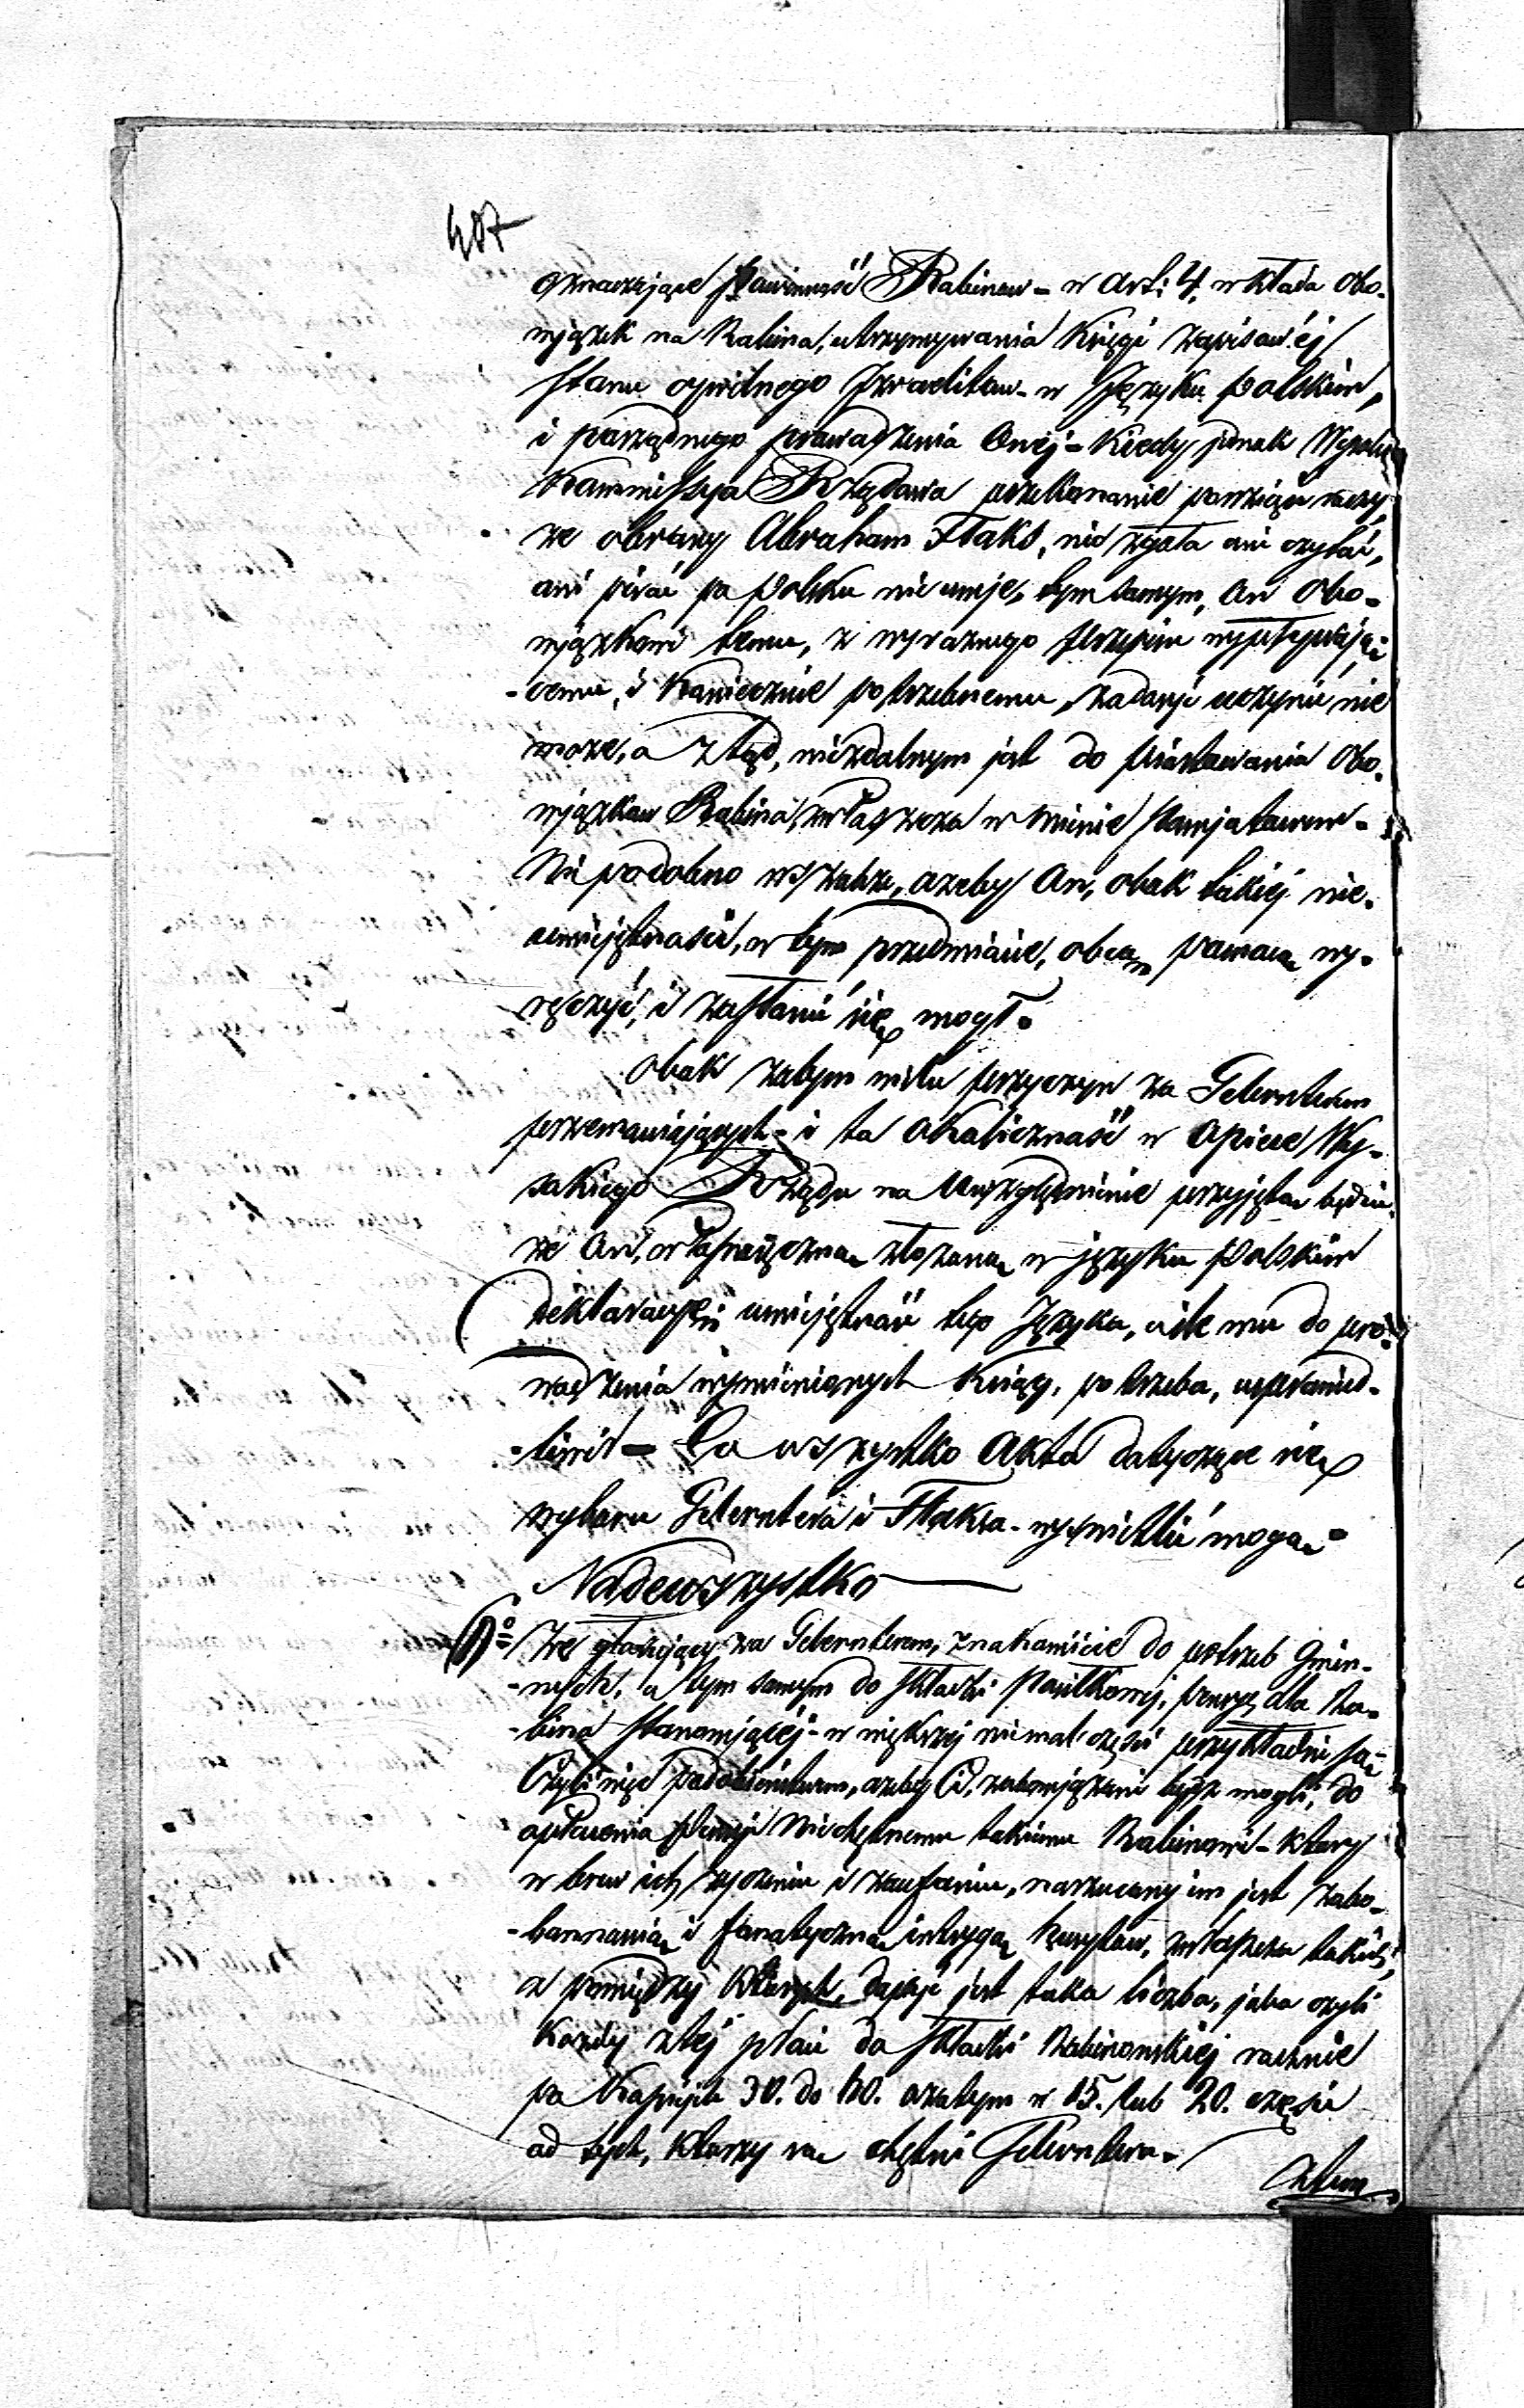 487
oznaczające powinność Rabinow - w Art: 4. wkłada Obo-
wjązek na Rabina, utrzymywania Księgi zapisowéj
stanu cywilnego Izraelitow - w Języku polskim,
i porządnego prowadzenia Onéj - Kiedy jednak Wysoka
Kommissya Rządowa przekonanie powziąść raczy,
że obrany Abraham Flaks, nie zgoła ani czytać,
ani pisać po Polsku nie umje, tym samym, On Obo-
wjązkowi temu, z wyraznego przepisu wypływają-
-cemu, i Koniecznie potrzebnemu, zadosyć uczynić nie
może, a ztąd, niezdalnym jest do piastowania Obo-
wjązkow Rabina, zwłaszcza w mieście
Nie podobno wszakże, ażeby On, obok takiéj nie-
umiejętnosci, w tym przedmiocie, obcą pomocą wy-
ręczyć, i zastąpić się mogł.
Obok zatym wielu przyczyn za Gelernterem
przemawiających - i ta okoliczność w Opiece Wy-
sokiego Rządu na uwzględnienie przyjęta będzie,
że On, własnoręczną złożoną w języku Polskim
deklaracyą umiejętność tego Języka, o ile mu do pro-
wadzenia wymienionych Ksiąg, potrzeba, usprawied-
-liwił - Co wszystko Akta dotyczące się
wyboru Gelerntera i Flaksa - wyswietlić mogą.
Nadewszystko
że głosujący za Gelernterem, znakomicie do potrzeb Gmin-
-nych, a tym samym do składki posiłkowéj, pensyą dla Ra-
-bina stanowjącéj - w większej niemal części przykładnie są -
Czyli więc podobieństwem, ażeby Ci, zobowjązani bydź mogli, do
opłacenia pensyi Niechętnemu takiemu Rabinowi - Ktory
w brew ich życzeniu i zaufaniu, narzucony im jest zabo-
-bonną i fanatyczną intrygą Husytow, zwłaszcza takich,
z pomiędzy Ktorych, dosyć jest taka liczba, jaka czyli
Kazdy ztéj płaci do składki Rabinowskiéj rocznie
po Kopijek 30. do 60. a zatym w 15. lub 20. części
od tych, Ktorzy są chętni Gelerntera -